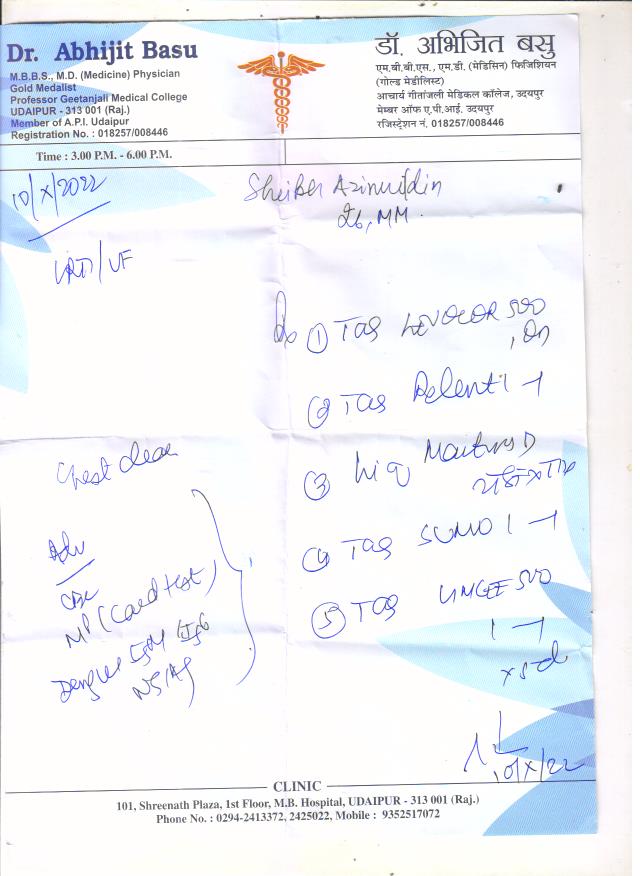 Dr. Abhijit Basu
M.B.B.S., M.D. (Medicine) Physician
Gold Medalist
Professor Geetanjali Medical College
UDAIPUR - 313 001 (Raj.)
Member of A.P.I. Udaipur
Registration No. : 018257/008446
डॉ. अभिजित बसु
एम.बी.बी.एस., एम.डी. (मेडिसिन) फिजिशियन
(गोल्ड मेडीलिस्ट)
आचार्य गीतांजली मेडिकल कॉलेज, उदयपुर
मेम्बर ऑफ ए.पी.आई. उदयपुर
रजिस्ट्रेशन नं. 018257/008446
Time : 3.00 P.M. - 6.00 P.M.
10/X/2022
26, MM.
URTI/VF
① TAB 500
② TAB 1-1
③ Liq D
④ TAB SUMO 1-1
⑤ TAB 500
1-1
x 5 d
Chest clear
Adv
CBC
MP (Card test)
Dengue IgM IgG
NS1Ag
10/X/22
CLINIC
101, Shreenath Plaza, 1st Floor, M.B. Hospital, UDAIPUR - 313 001 (Raj.)
Phone No. : 0294-2413372, 2425022, Mobile : 9352517072